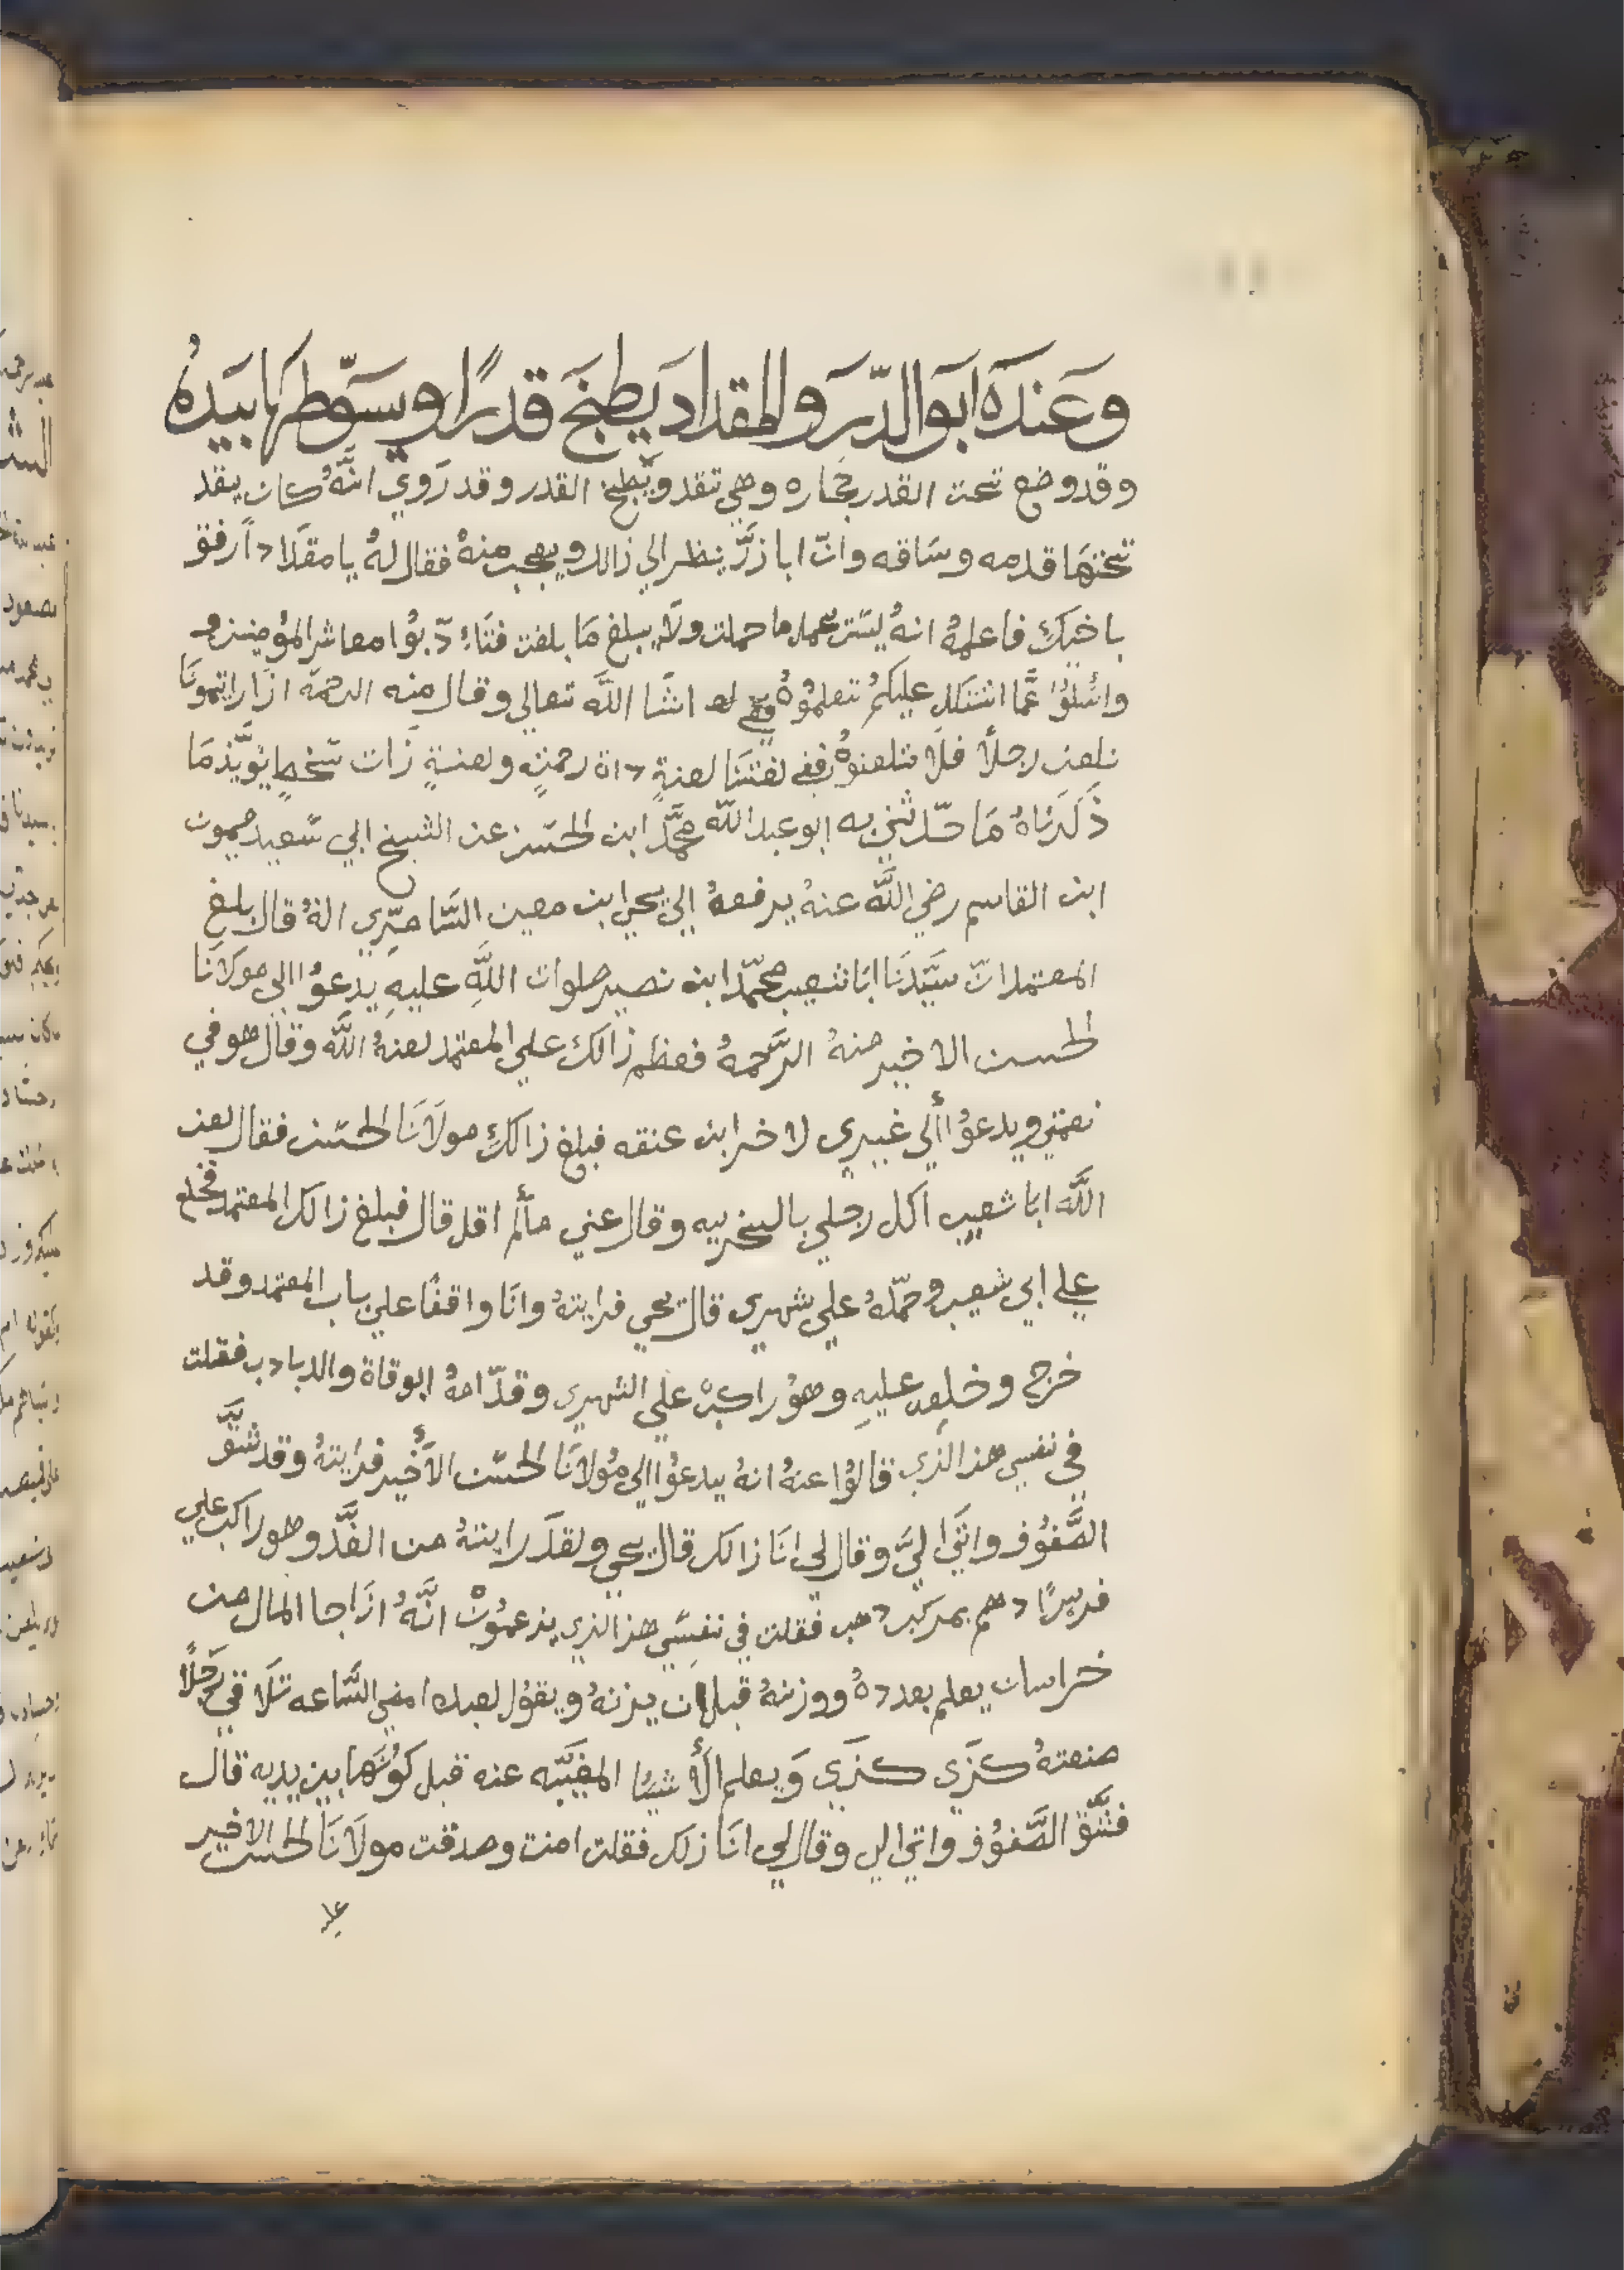 وعنده ابوا الدّر والمقداد يطبخ قدرًا ويسوّطها بيدهُ
وقد وضع تحت القدر بحاره وهي تقد ويطبخ القدر وقد رَوي انَّهُ كان يقد
تحتها قدمه وساقه وانّ ابا ذرَّ ينظر الي ذالك ويعجب منهُ فقال لهُ يا مقدادًا رفق
باخيك فاعلمهُ انهُ ليس يحمل ما حملت ولا يبلغ مَا بلغت فتَادّبُوا معاشر المؤمنين و
واسئلوُا عمَّا اشتكل عليكمُ تعلمُوُهُ انشا اللَّه تعالي وقال منه الرحمَة اذا رايتمونَا
نلعن رجلاً فلا تلعنوهُ ففي لغتنَا لعنةٍ داة رحمَةٍ ولعنةٍ ذات سَخطٍ يوَيّد مَا
ذَكَرنَاهُ مَا حدّثني به ابو عبد اللَّه محمَّد ابن الحسَن عن الشيخ ابي سَعيد ميمون
ابن القاسم رضي اللَّه عنهُ يرفعهُ الي يحي ابن معين السَّامرّي انهُ قال بلغ
المعتمد انّ سيَّدنَا ابَا شعيب محمّد ابن نصير صلوات اللَّهِ عليهِ يدعوُا الي مولانَا
الحسن الاخير منهُ الرَّحمهُ فعظم ذالك علي المعتمد لعنهُ اللَّه وقال هو في
نعمتي ويدعوُا ألي غيري لاضرابن عنقه فبلغ ذالك مولَانَا الحسَن فقال لعن
اللَّه ابا شعيب اكل رجلي بالسخريه وقال عني مالَم اقل قال فبلغ ذالك المعتمد فخلع
علي ابي شعيب وحمّلهُ علي شهري قال يحي فرايتهُ وانَا واقفًا علي باب المعتمد وقد
خرج وخلعه عليهِ وهوُ راكبْ علي الشهري وقدّامهُ ابوقاة والدبادب فقلت
في نفسي هذا الذي قالوُا عنهُ انهُ يدعوُا الي مُولانَا الحسَن الأخير فرَايتهُ وقد شقَّ
الصَّفوُف واتَي اليَّ وقال لي انَا ذالك قال يحي ولقدَ رايتهُ من الغَّد وهو راكب علي
فرسًا دهم بمركب دهب فقلت في نفسَي هذا الذي يزعموُنْ انَّهُ اذَا جا المال من
خراسان يعلم بعددهُ ووزنهُ قبل ان يزنهُ ويقوُل لعبده امض السَّاعه تلَاقي رَجلًا
صنعتهُ كزَي كزَي وَيعلم الأشيا المغيَّبه عنه قبل كوُنَهَا بين يديه قال
فشَّق الصَّفوُف واتي الي وقال لي انَا ذلك فقلت امنت وصدقت مولَانَا الحسن الاخير